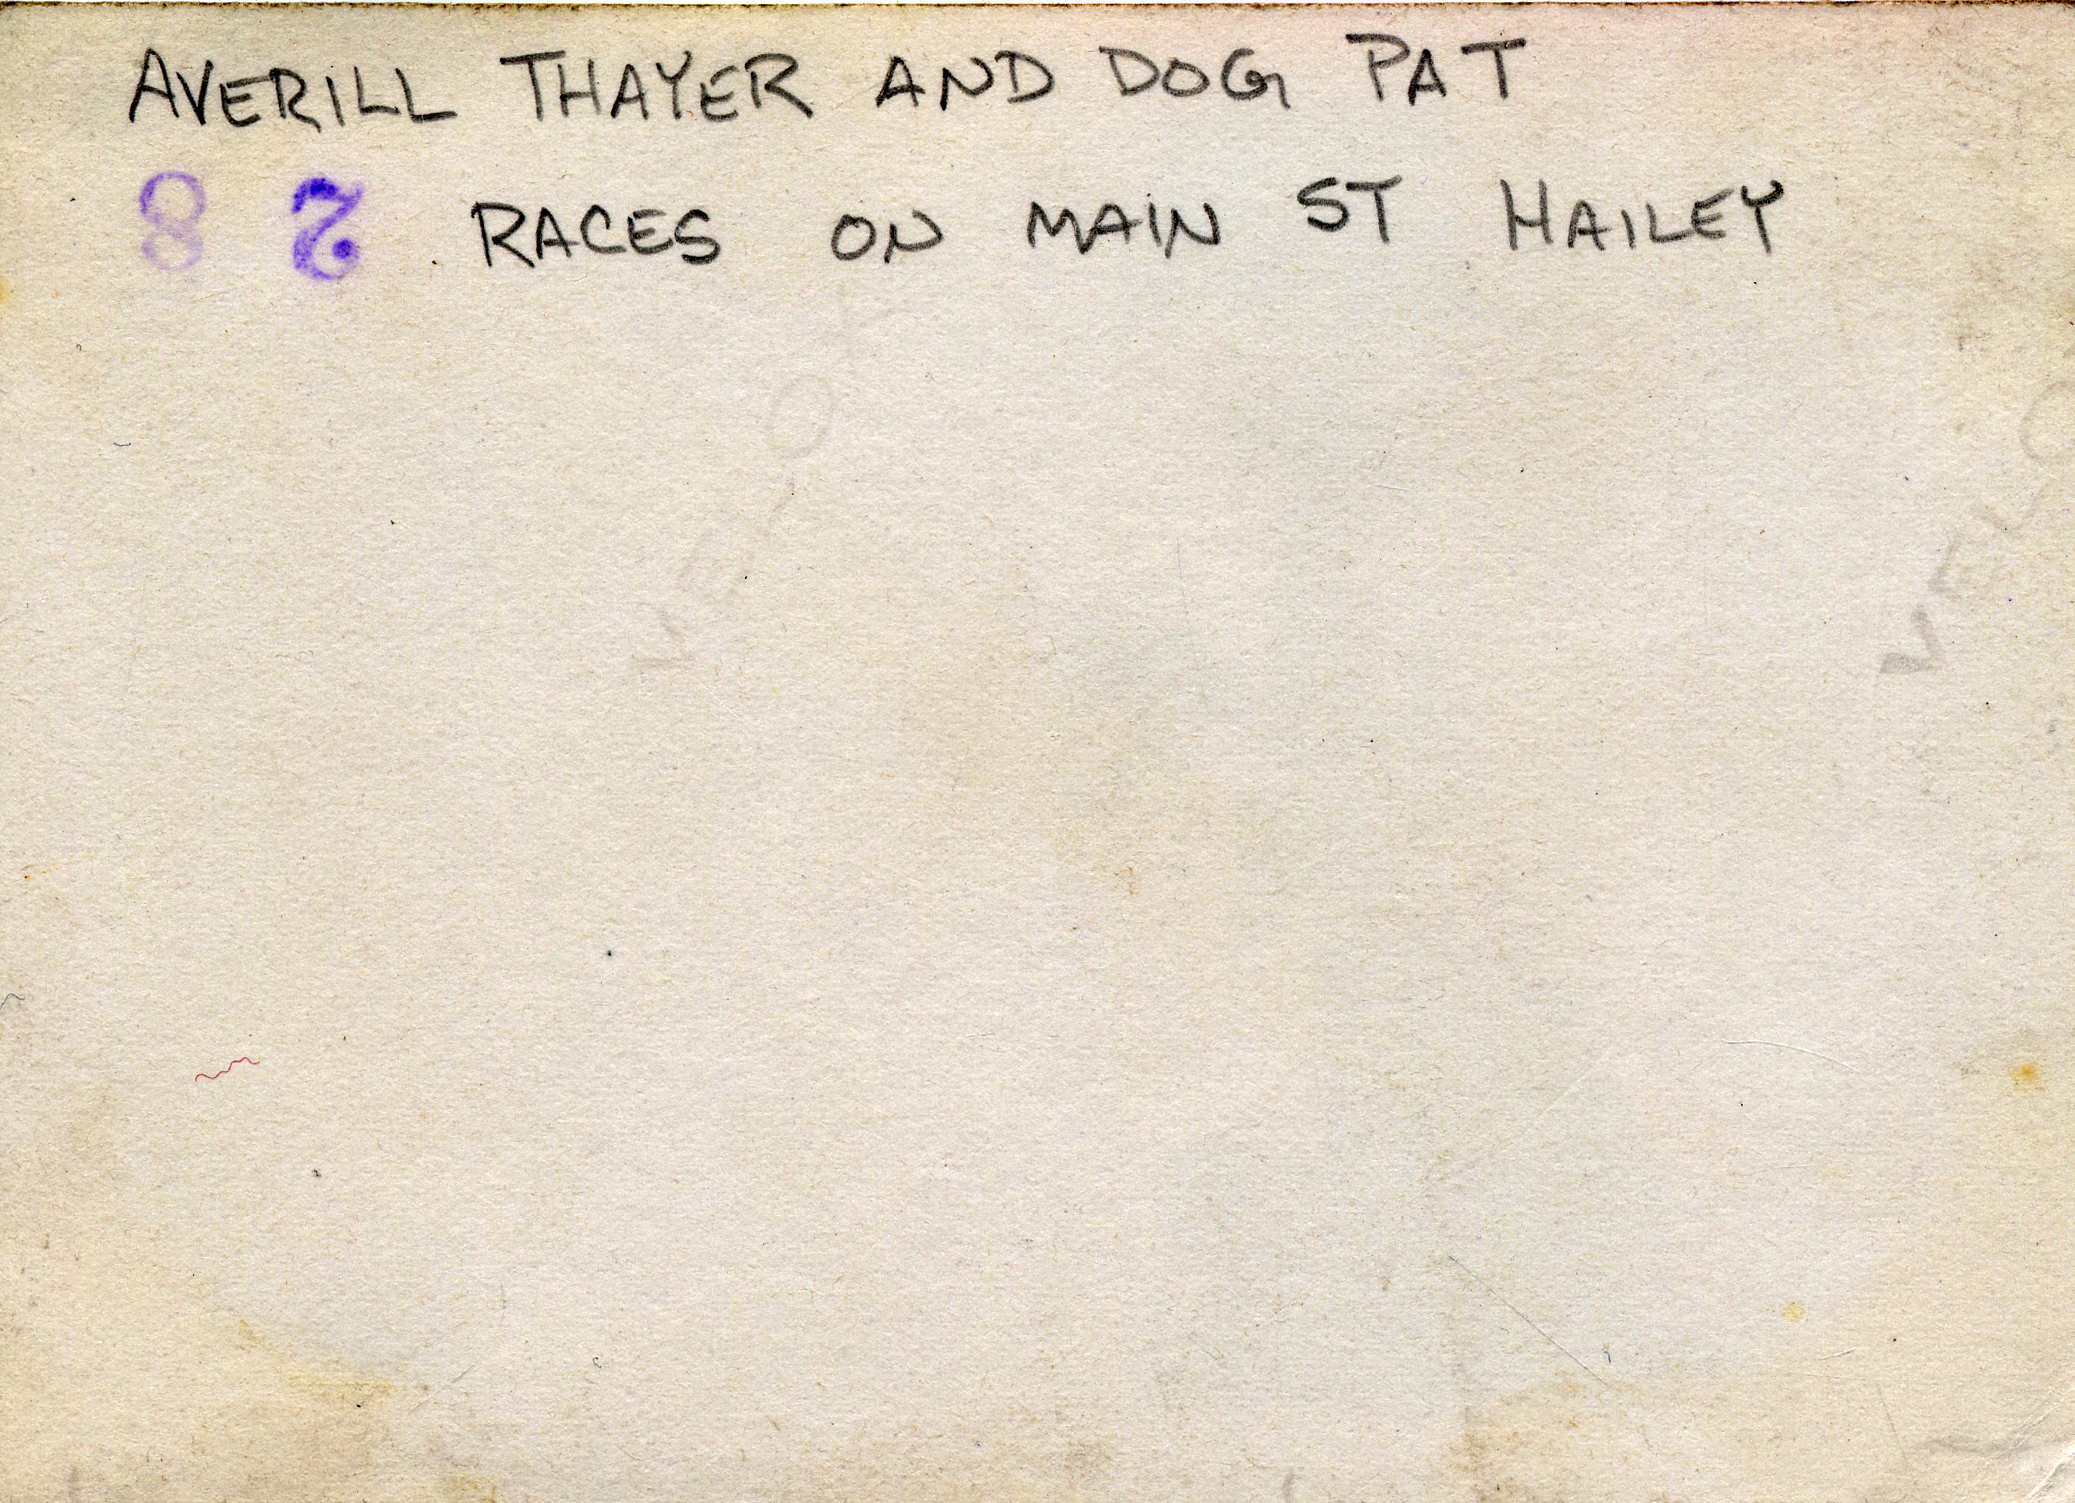 AVERILL THAYER AND DOG PAT
8 2 RACES ON MAIN ST HAILEY
VELOX
VELO